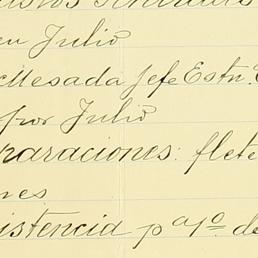 en Julio
Mesada Jefe Estn.
por Julio
araciones: flete
nes
istencia pa 1º de